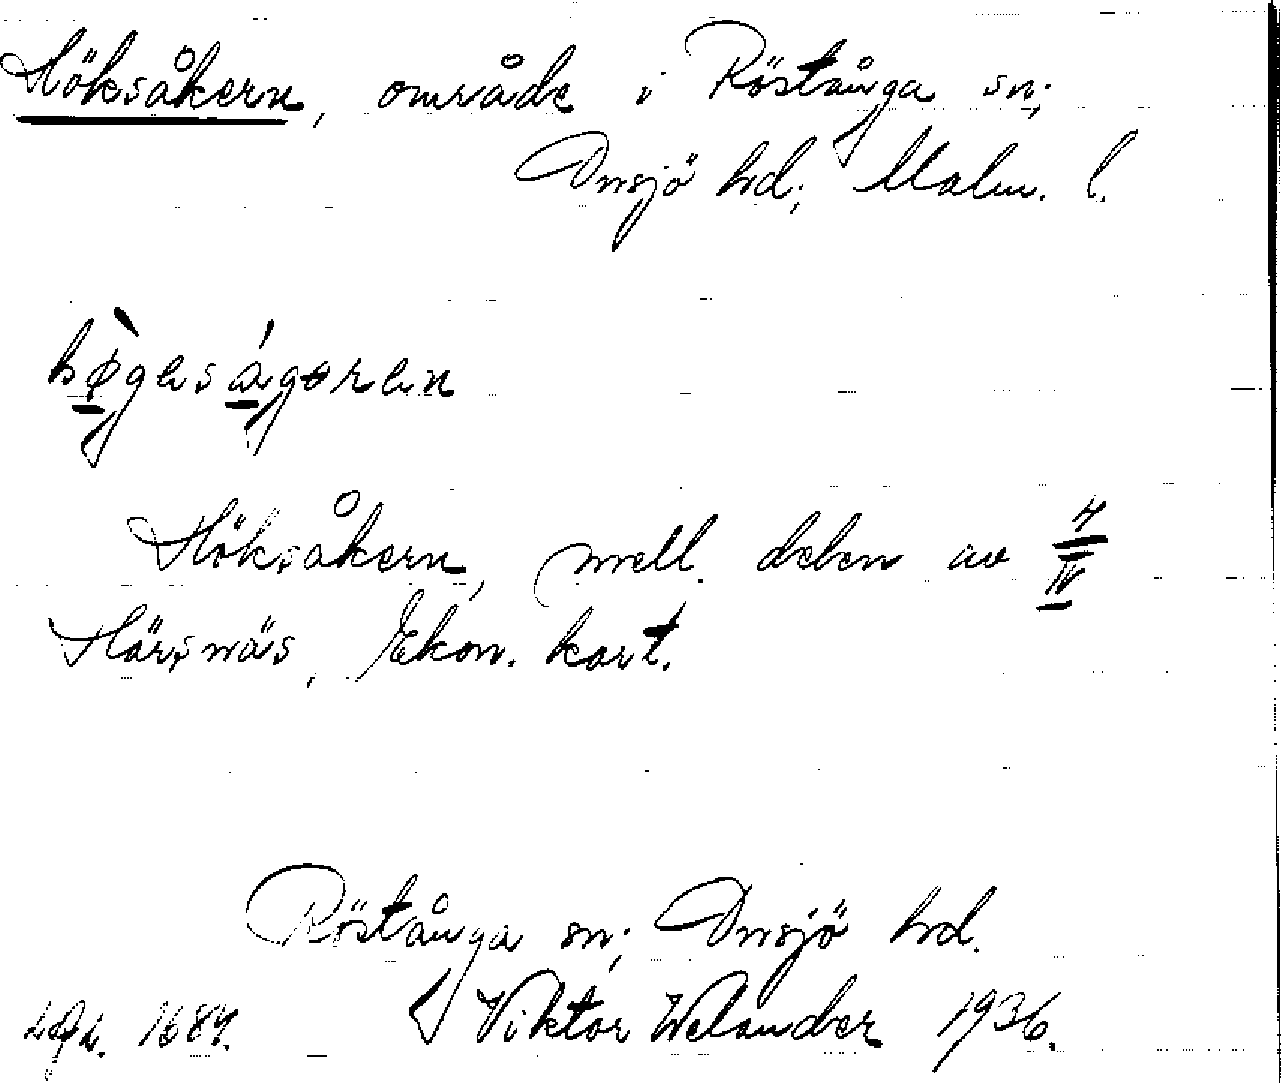 Höksåkern, område i Röstånga sn;
Onsjö hd; Malm. l.
Höksåkern, mell. delen av 4/IV
Härsnäs, Ekon. kart.
Röstånga sn; Onsjö hd.
1684. Viktor Welander 1936.